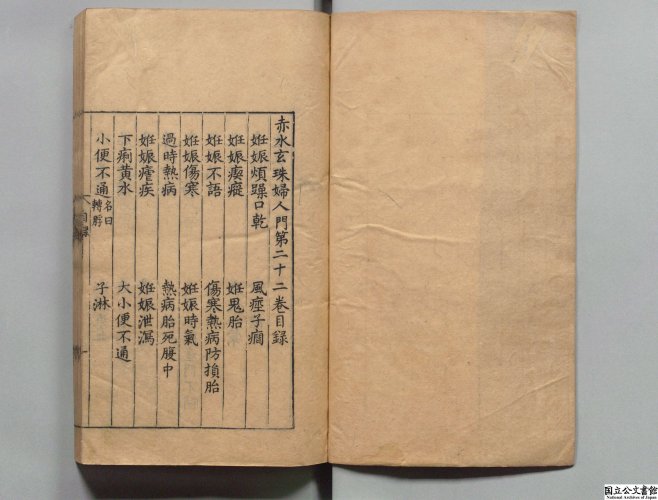 赤水玄珠婦人門第二十二卷目錄
姙娠煩躁口乾 風痙子癇
姙娠瘈瘲 姙鬼胎
姙娠不語 傷寒熱病防損胎
姙娠傷寒 姙娠時氣
過時熱病 熱病胎死腹中
姙娠瘧疾 姙娠泄瀉
下痢黃水 大小便不通
小便不通名曰轉脬 子淋
目錄
一
国立公文書館
National Archives of Japan